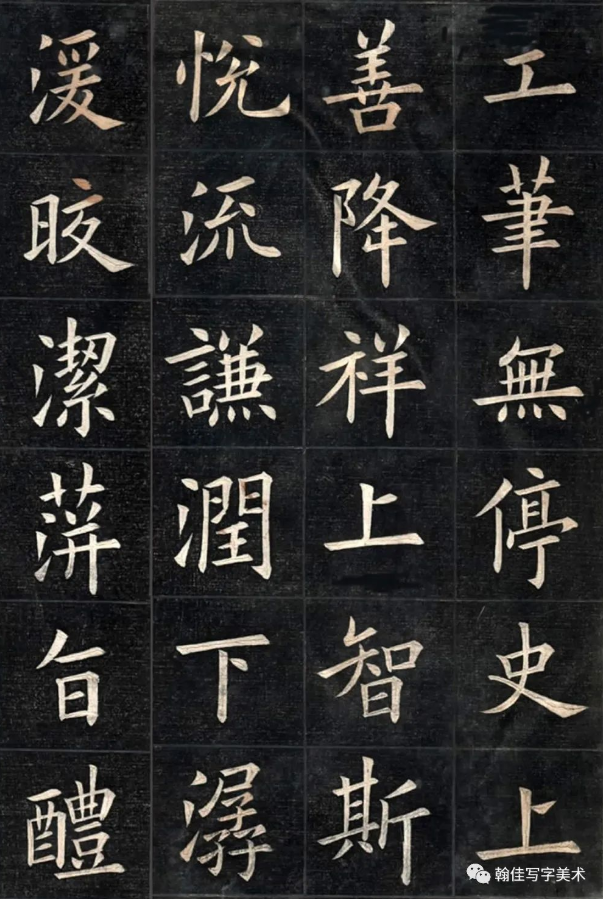 工筆無停史上
善降祥上智斯
悅流謙潤下潺
湲晈潔萍旨醴
翰佳写字美术